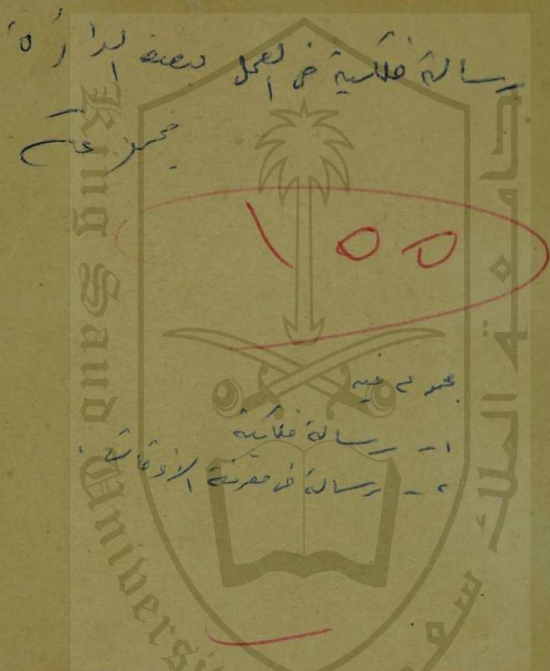 رسالة فلكية في العمل بنصف الدائرة
مجموعة
١٥٥
مجموع فيه
١- رسالة فلكية
٢- رسالة في معرفة الأوقات.
King Saud University
جامعة الملك سعود